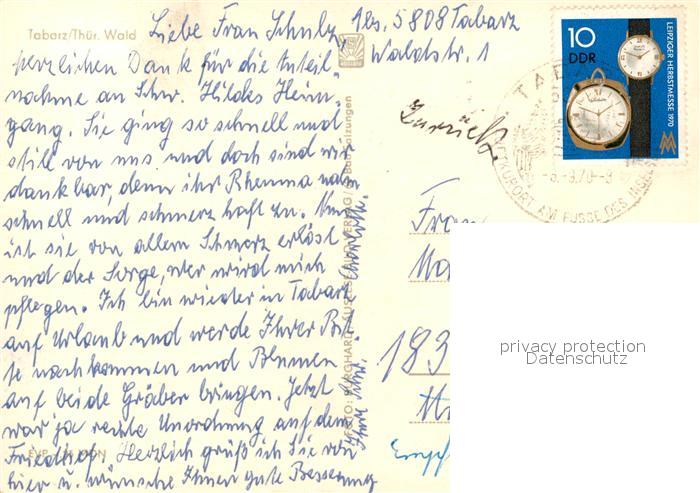 Tabarz/Thür. Wald
Liebe Frau Schulz,
herzlichen Dank für die Anteil-
nahme an Schw. Hildes Heim-
gang. Sie ging so schnell und
still von uns und doch sind wir
dankbar, denn ihr Rheuma nahm
schnell und schmerzhaft zu. Nun
ist sie von allem Schmerz erlöst
und der Sorge, wer wird mich
pflegen. Ich bin wieder in Tabarz
auf Urlaub und werde Ihrer Bit-
te nachkommen und Blumen
auf beide Gräber bringen. Jetzt
war ja rechte Unordnung auf dem
Friedhof. Herzlich grüß ich Sie von
hier u. wünsche Ihnen gute Besserung
Ihre Schw.
5808 Tabarz
Waldstr. 1
Zurück
10
DDR
LEIPZIGER HERBSTMESSE 1970
AM FUSSE DES
Frau
183
privacy protection
Datenschutz